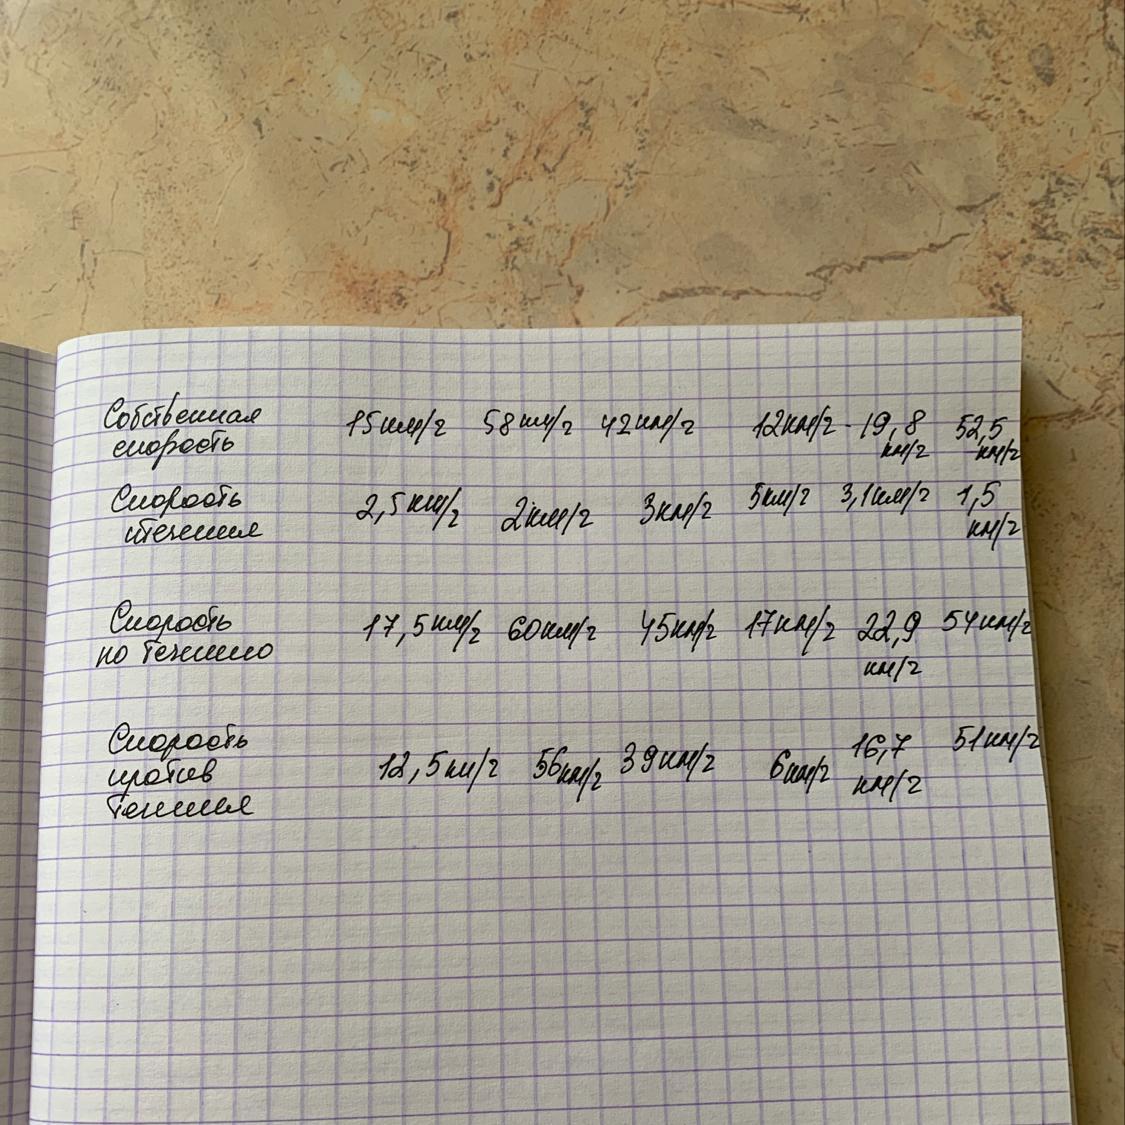 Собственная 15км/ч 58км/ч 42км/ч 12км/ч - 19,8 52,5
скорость км/ч км/ч
Скорость 2,5км/ч 2км/ч 3км/ч 5км/ч 3,1км/ч 1,5
течения км/ч
Скорость 17,5км/ч 60км/ч 45км/ч 17км/ч 22,9 54км/ч
по течению км/ч
Скорость 16,7 51км/ч
против 12,5км/ч 56км/ч 39км/ч 6км/ч км/ч
течения